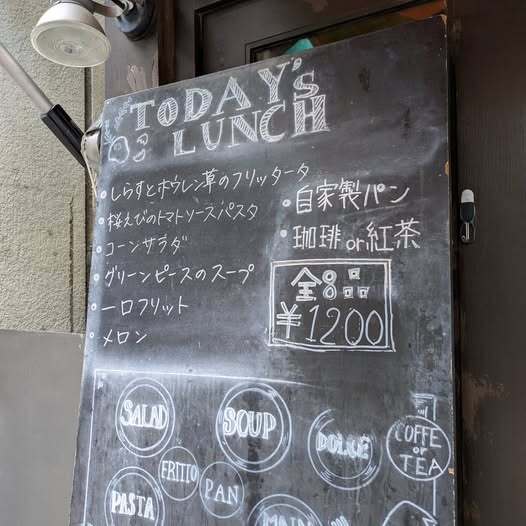 TODAY'S
LUNCH
・しらすとホウレン草のフリッタータ
・桜えびのトマトソースパスタ
・コーンサラダ
・グリーンピースのスープ
・一口フリット
・メロン
・自家製パン
・珈琲or紅茶
全8品
¥1200
SALAD
SOUP
DOLCE
COFFE
or
TEA
FRITTO
PAN
PASTA
MAIN